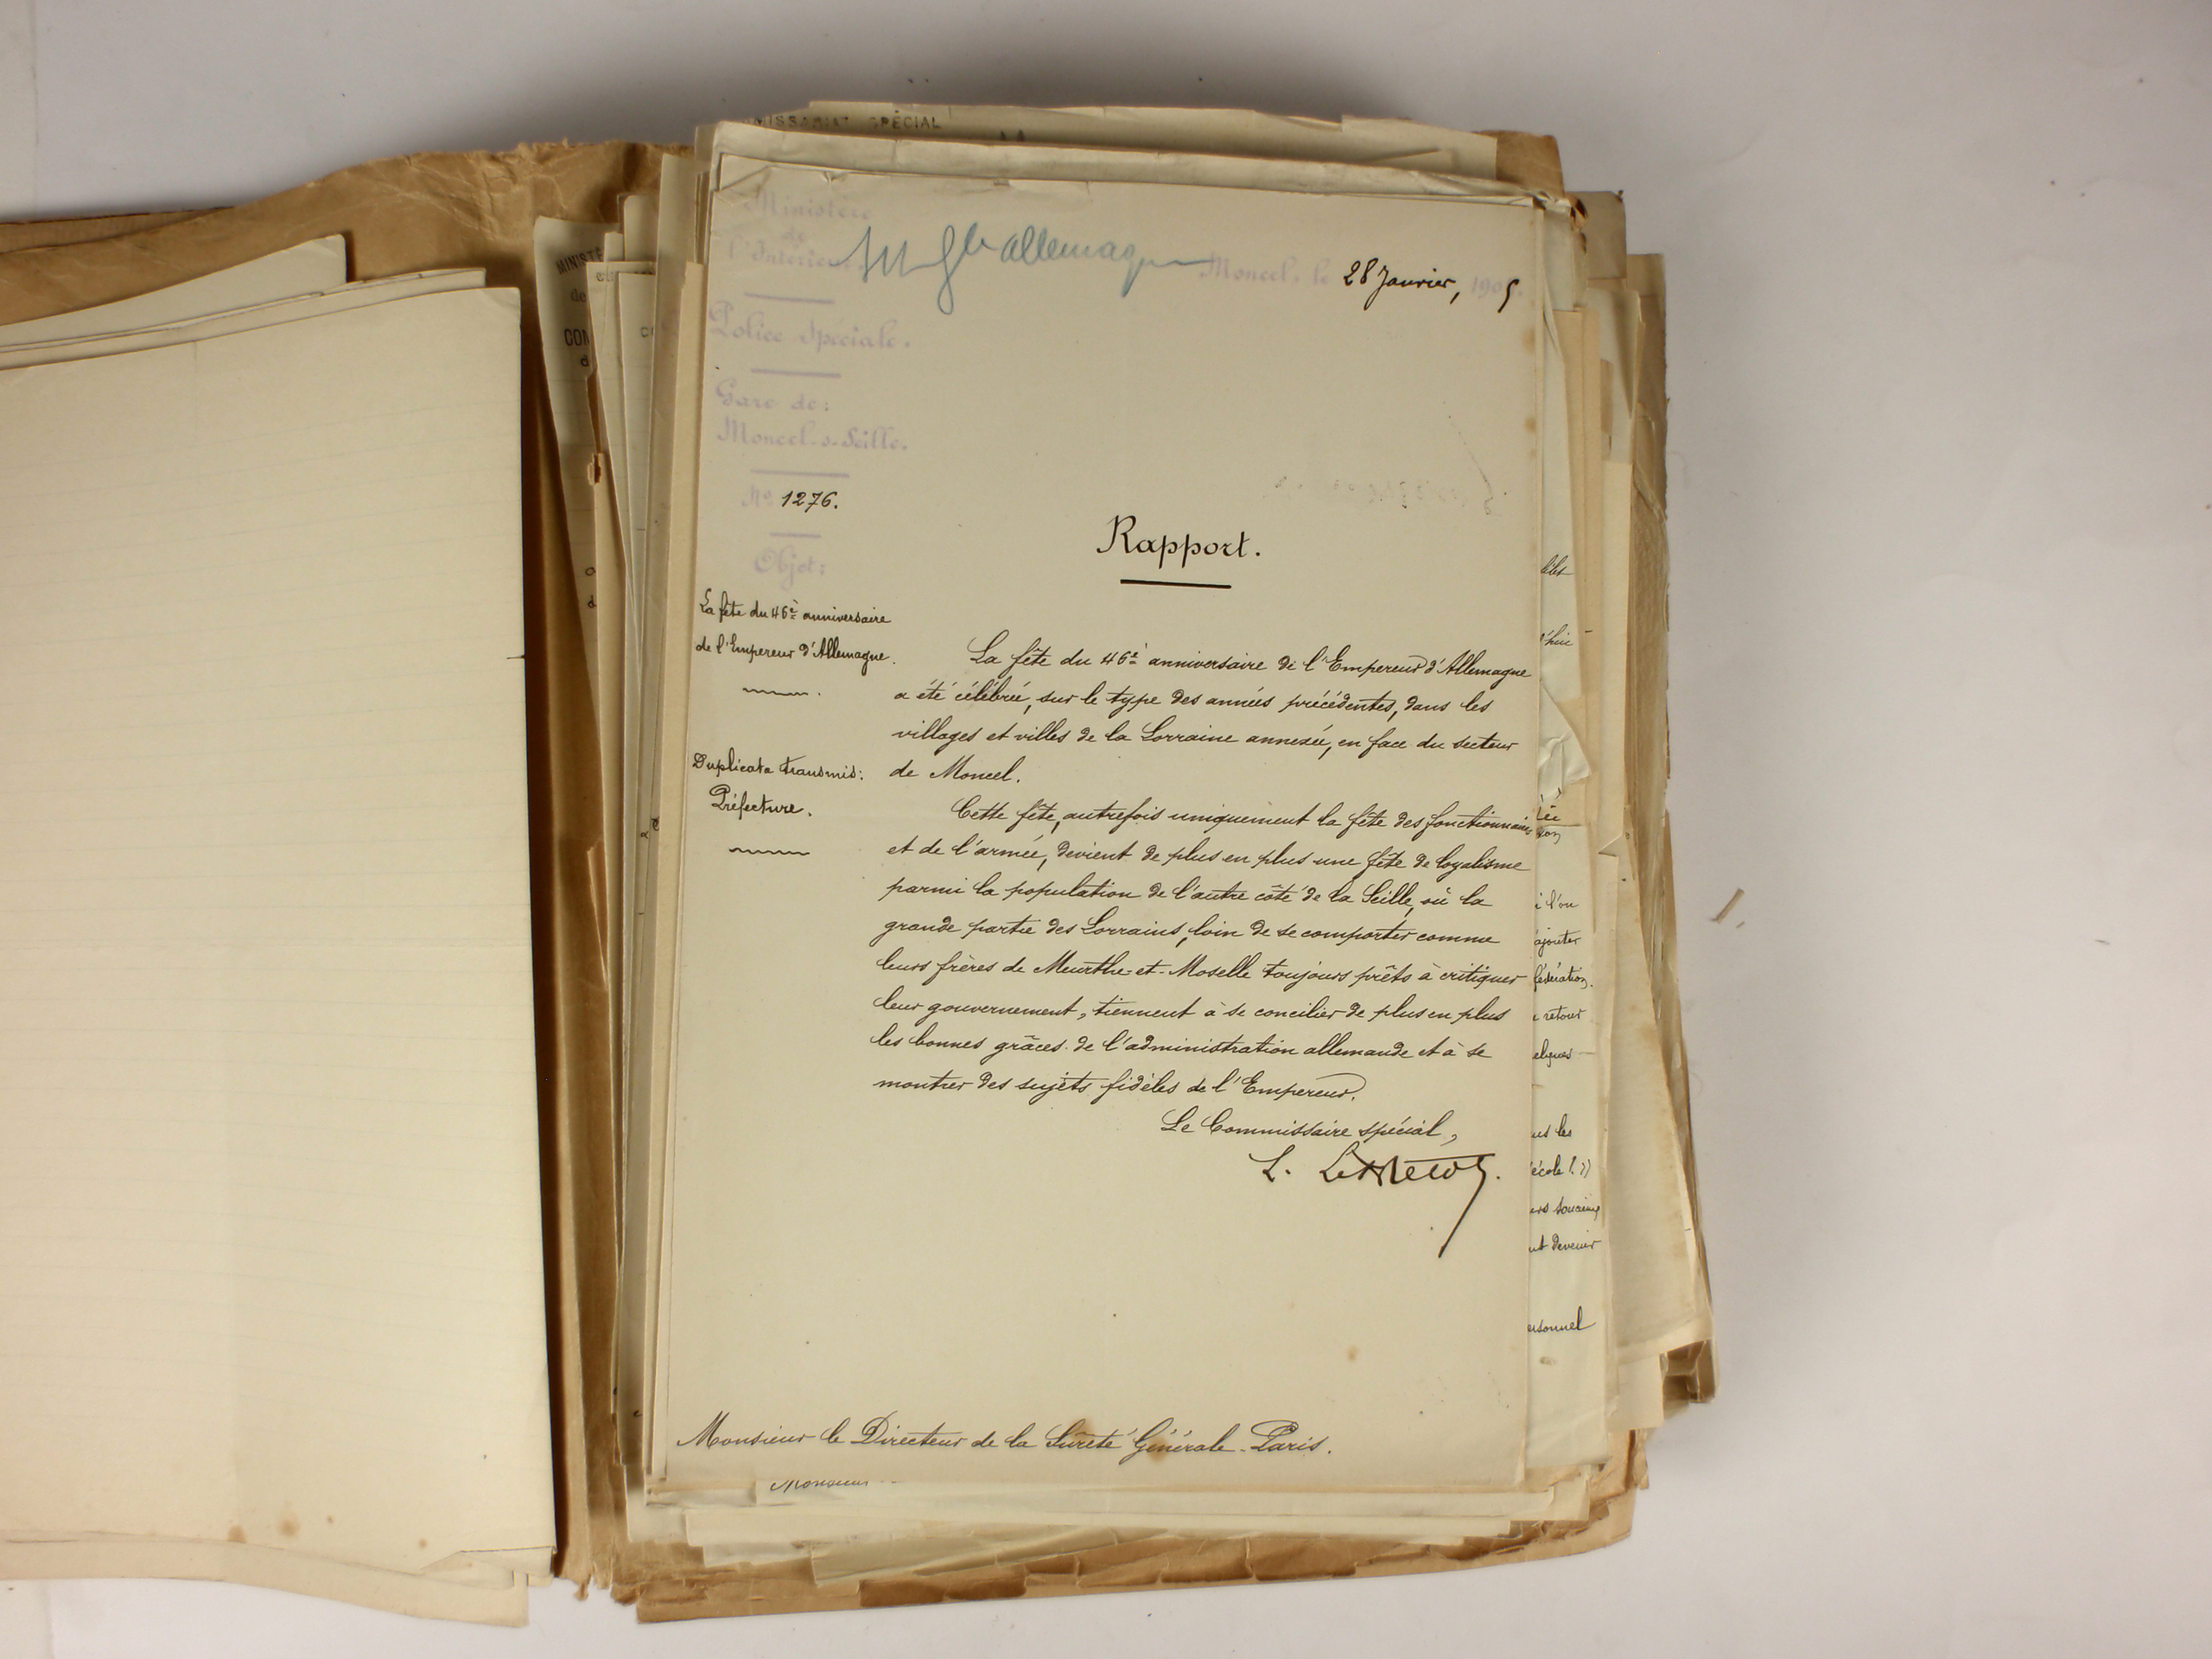 MISSARIAT SPÉCIAL
Ministère
de
l'Intérieur
Allemagne
Moncel, le 28 Janvier, 1905.
Police Spéciale.
Gare de:
Moncel-s-Seille.
No 1276.
Objet:
Rapport.
La fête du 46e anniversaire
de l'Empereur d'Allemagne.
Duplicata transmis:
Préfecture.
La fête du 46e anniversaire de l'Empereur d'Allemagne
a été célébrée, sur le type des années précédentes, dans les
villages et villes de la Lorraine annexée, en face du secteur
de Moncel.
Cette fête, autrefois uniquement la fête des fonctionnaires
et de l'armée, devient de plus en plus une fête de loyalisme
parmi la population de l'autre côté de la Seille, où la
grande partie des Lorrains, loin de se comporter comme
leurs frères de Meurthe-et-Moselle toujours prêts à critiquer
leur gouvernement, tiennent à se concilier de plus en plus
les bonnes grâces de l'administration allemande et à se
montrer des sujets fidèles de l'Empereur.
Le Commissaire spécial,
L.
Monsieur le Directeur de la Sûreté Générale-Paris.
MINISTÈ
de
CON
i l'on
ajouter
fédération.
retour
us les
école
ut devenir
ersonnel
Monsieur